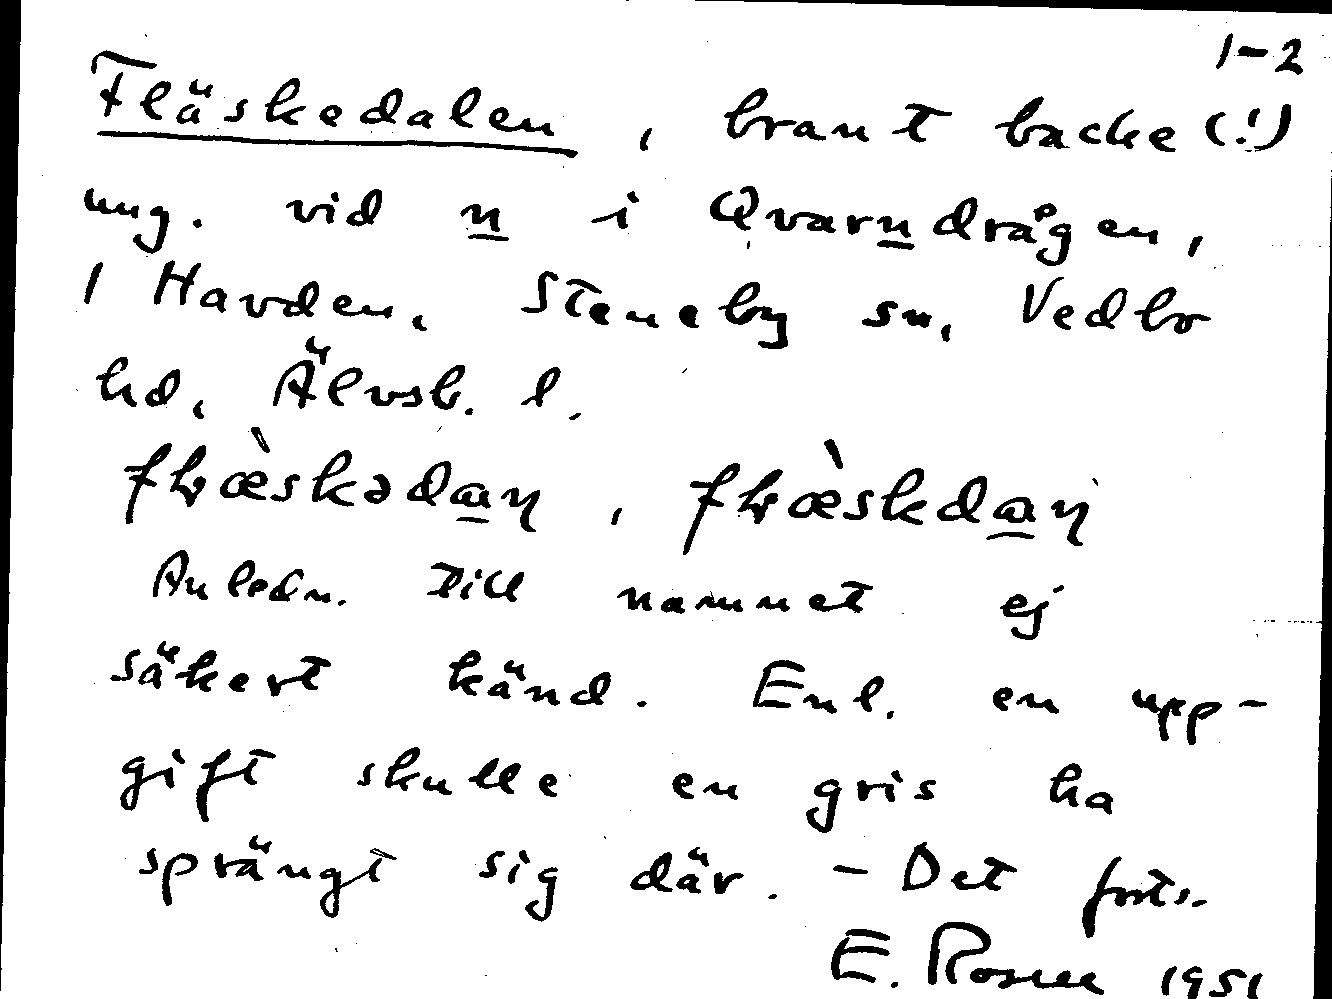 1-2
Fläskedalen, brant backe (!)
ung. vid n i Qvarndrågen,
1 Havden, Steneby sn, Vedbo
hd, Älvsb. l.
Anledn. till namnet ej
säkert känd. Enl. en upp-
gift skulle en gris ha
sprängt sig där. - Det forts.
E. Rosell 1951